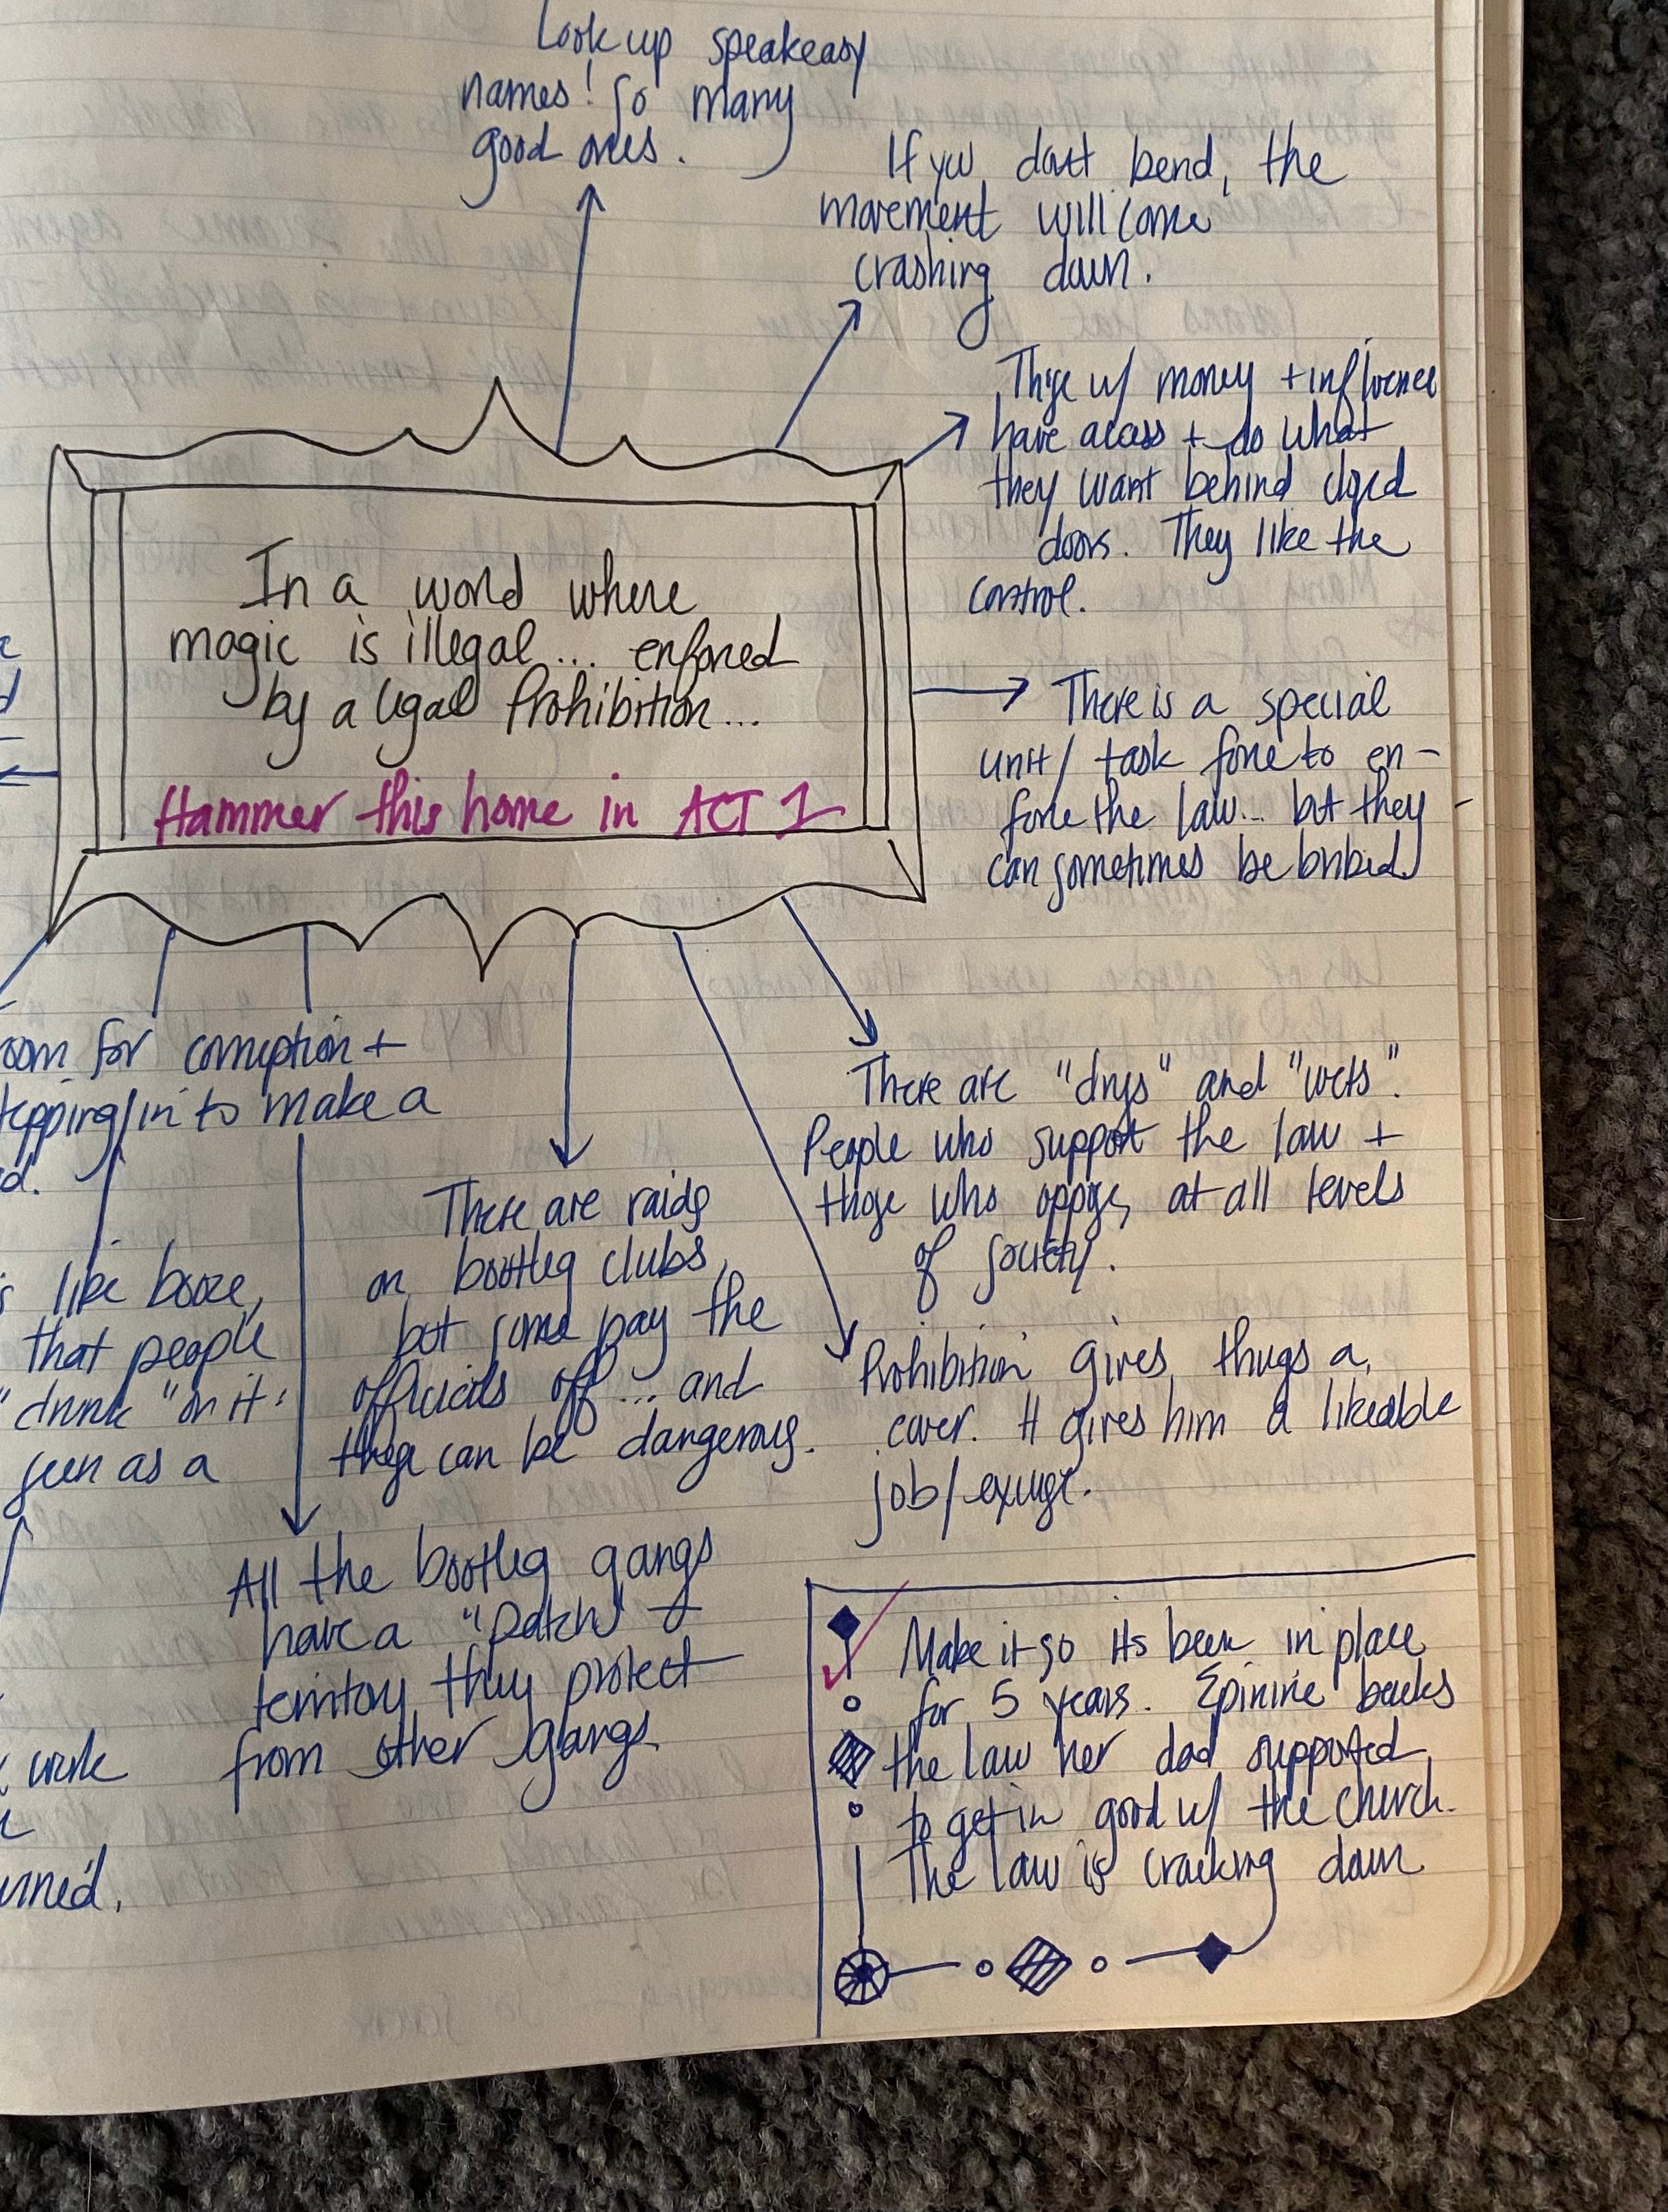 Look up speakeasy
names! So many
good ones.
If you don't bend, the
movement will come
crashing down.
Those w/ money + influence
have access + do what
they want behind closed
doors. They like the
control.
In a world where
magic is illegal... enforced
by a legal Prohibition...
Hammer this home in ACT 1
There is a special
unit/ task force to en-
force the law... but they
can sometimes be bribed.
There are "drys" and "wets".
People who support the law +
those who oppose, at all levels
of society.
Prohibition gives thugs a
cover. It gives him a likeable
job/excuse.
There are raids
on bootleg clubs,
but some pay the
officials off... and
these can be dangerous.
All the bootleg gangs
have a "patch" +
territory they protect
from other gangs.
oom for corruption +
tepping in to make a
d.
s like booze,
that people
"drunk" on it
seen as a
work
urned.
Make it so its been in place
for 5 years. Epinine backs
the law her dad supported
to get in good w/ the church.
The law is cracking down